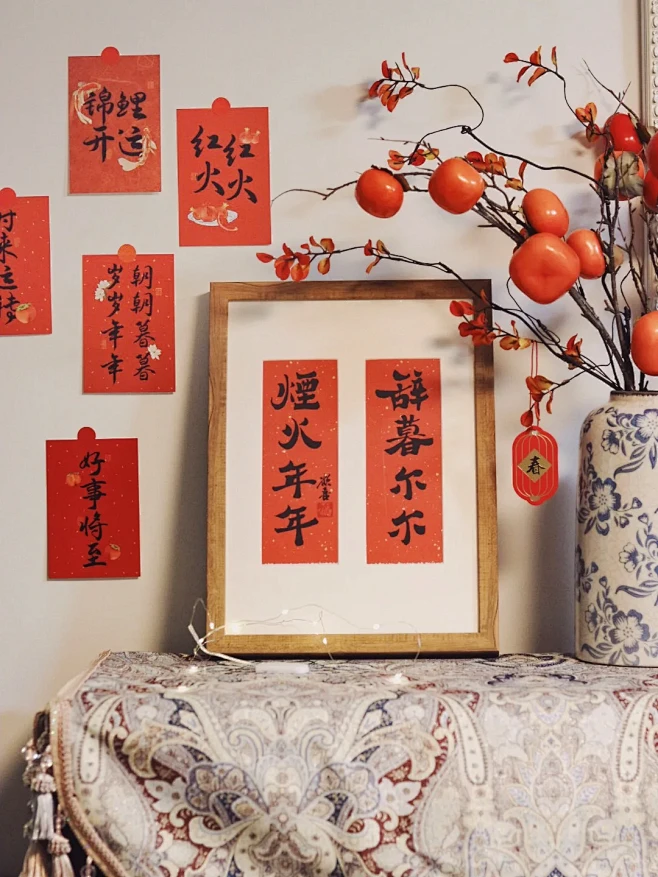 锦鲤
开运
红火
红火
时来运转
朝朝暮暮
岁岁年年
好事将至
辞暮尔尔
煙火年年
春